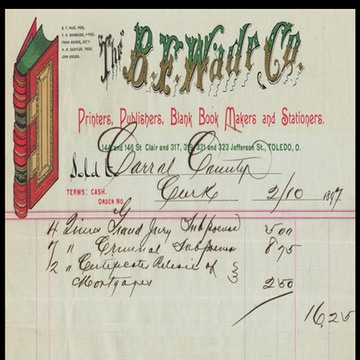 B. F. WADE, PRES.
F. W. BOWERSOX, V. PRES.
FRANK BOWERS, SEC'Y.
H. W. SACHTLER, TREAS.
JOHN KAISER.
The B.F. Wade Co.
Printers, Publishers, Blank Book Makers and Stationers.
144 and 146 St Clair and 317, 319, 321 and 323 Jefferson St., TOLEDO, O.
Sold to Carral County
TERMS: CASH.
Clerk 2/10 1897
ORDER NO. G
4 Quires Grand Jury Subpoena 500
7 " Criminal Subpoena 875
2 " Certificate Release of
Mortgages 250
16,25